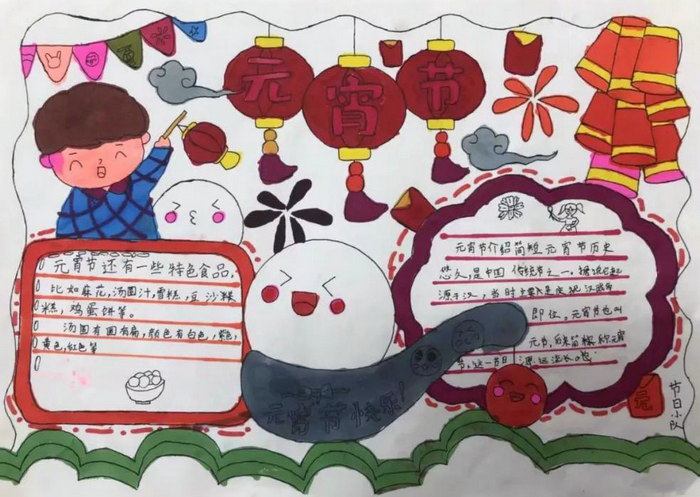 元宵节
元宵节还有一些特色食品,
比如麻花,汤圆汁,雪糕,豆沙粽
糕,鸡蛋饼等。
汤圆有圆有扁,颜色有白色,紫色,
黄色,红色等
元宵节快乐!
元宵节介绍简短元宵节历史
悠久,是中国传统节之一,据说
源于汉,当时主要
即位,元宵节也叫
元节,
节,这一节日源远流长。
元
节日小队